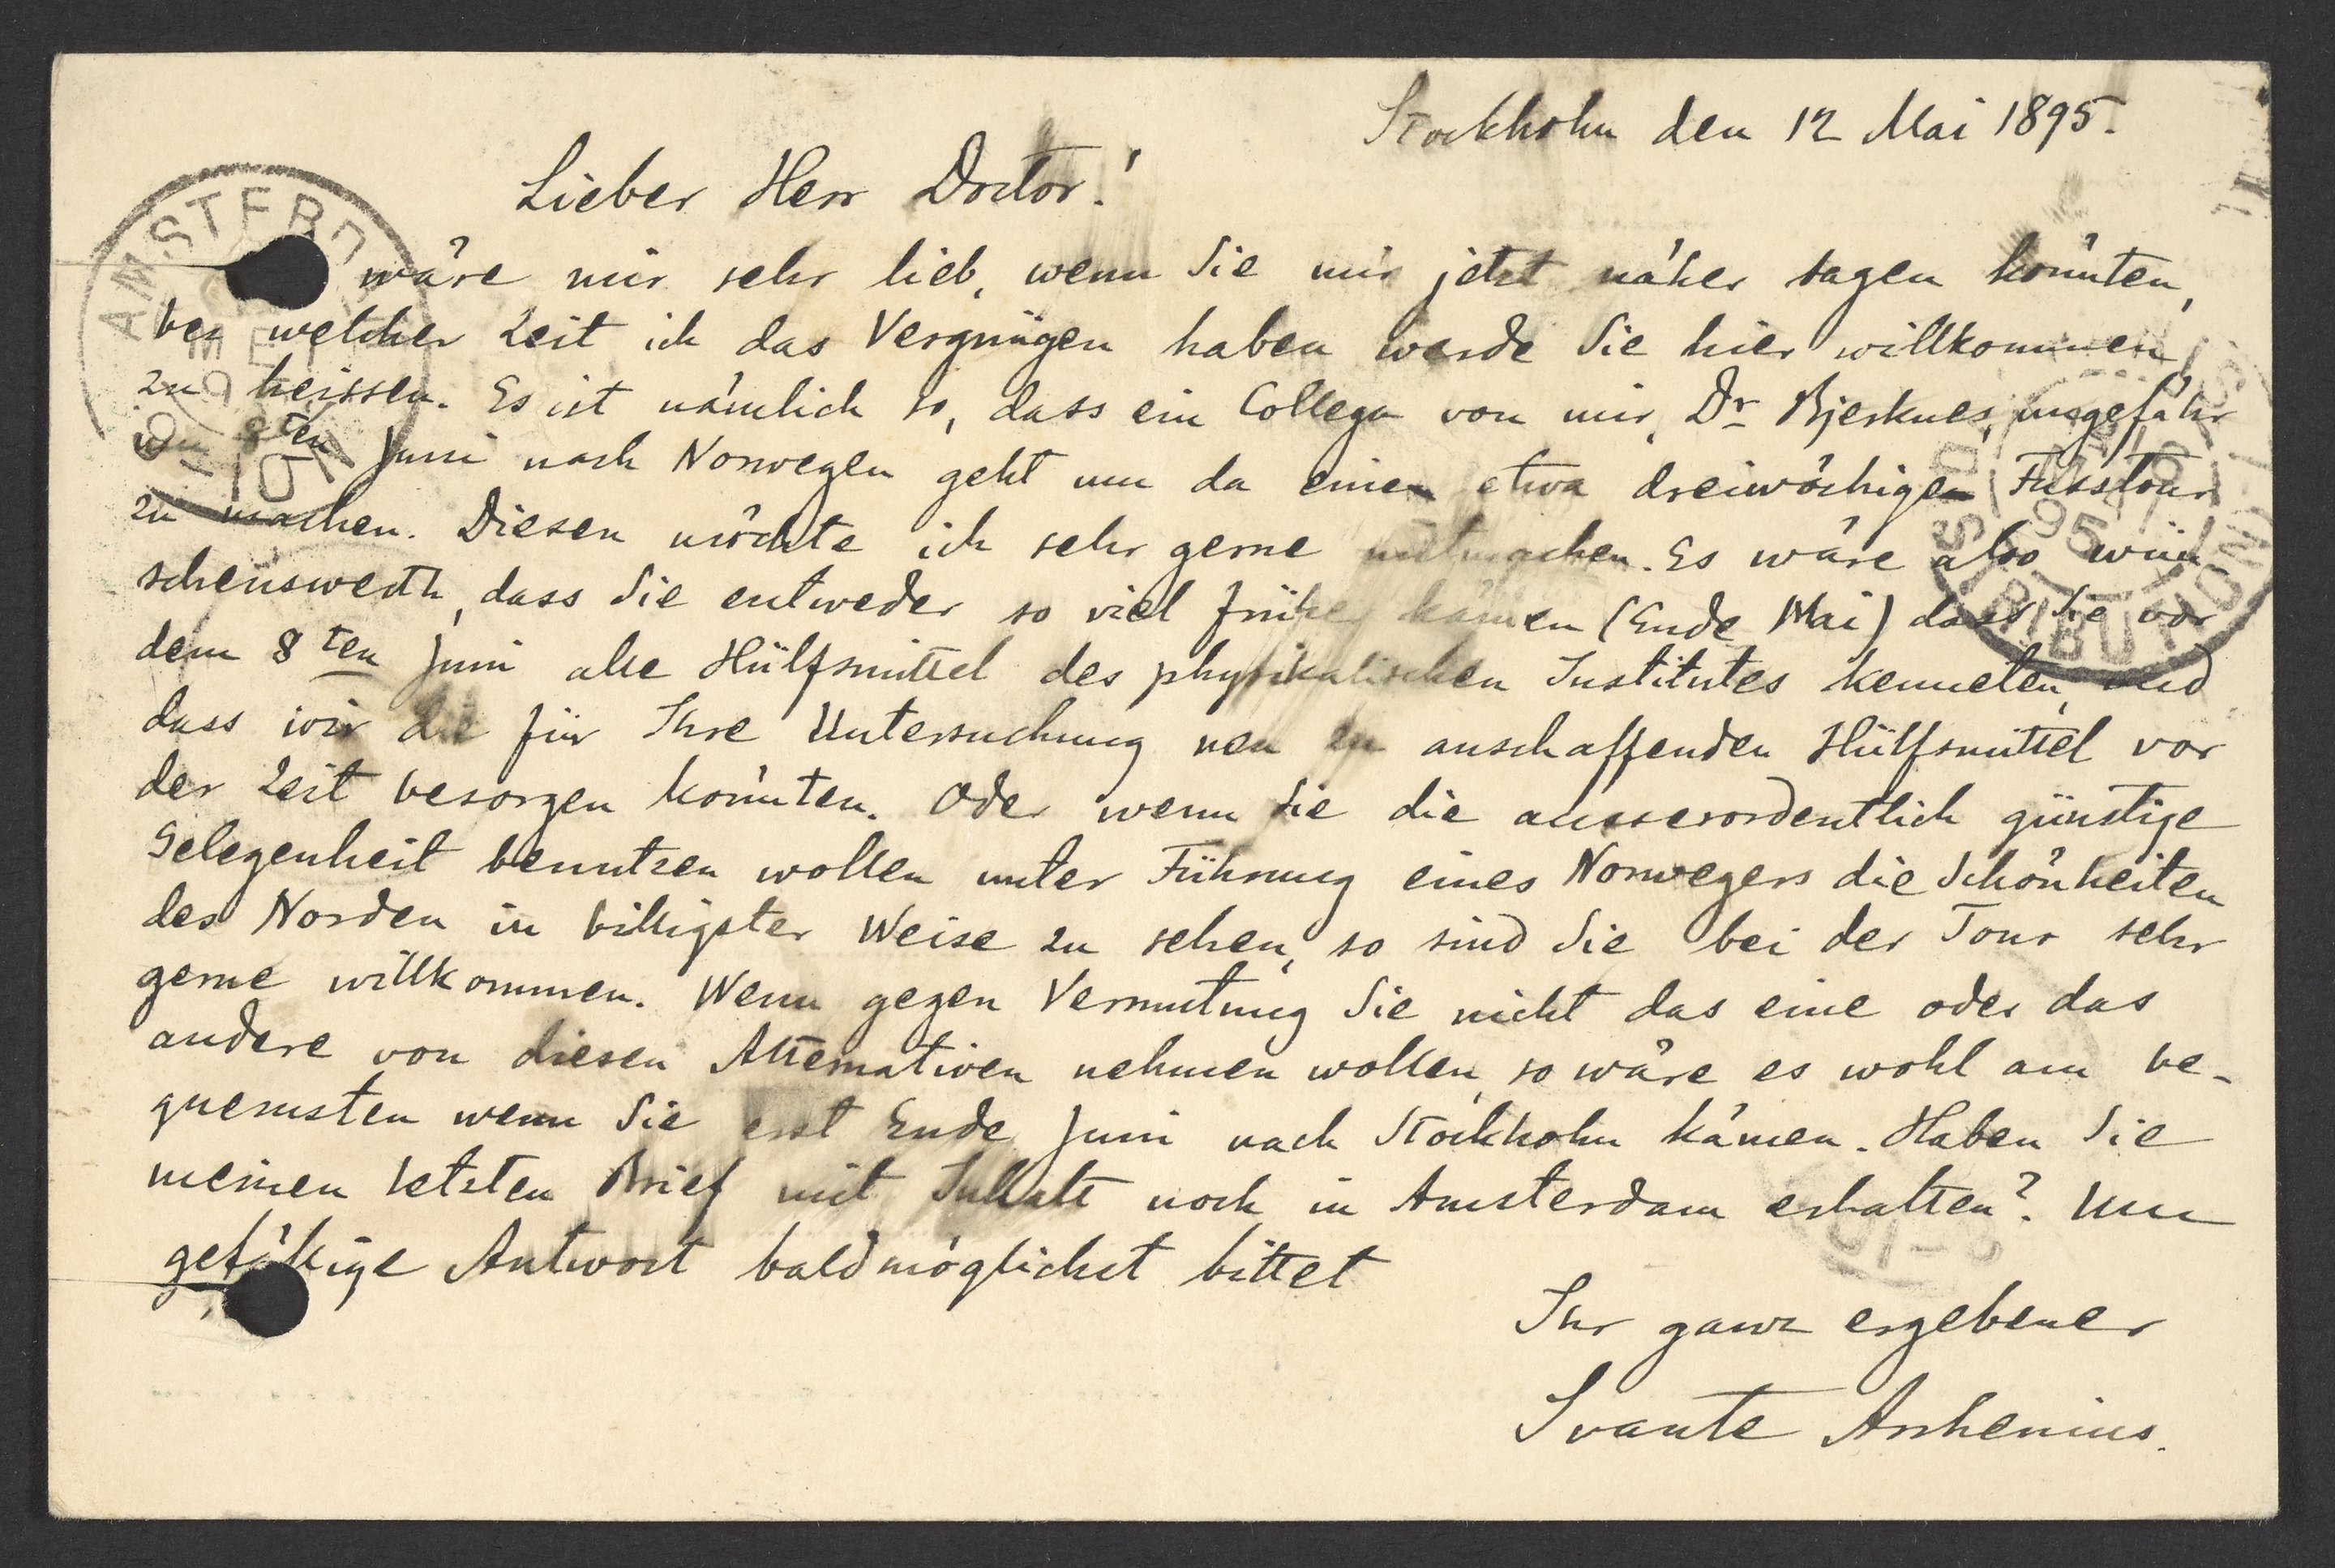 Stockholm den 12 Mai 1895.
Lieber Herr Doctor!
wäre mir sehr lieb, wenn Sie mir jetzt näher sagen könnten,
bei welcher Zeit ich das Vergnügen haben werde Sie hier willkommen
zu heissen. Es ist nämlich so, dass ein College von mir, Dr Bjerknes, ungefähr
8ten Juni nach Norwegen geht um da einen etwa dreiwöchigen Fusstour
zu machen. Diesen möchte ich sehr gerne mitmachen. Es wäre also wün
schenswerth, dass Sie entweder so viel früher kämen (Ende Mai) dass Sie vor
dem 8ten Juni alle Hülfsmittel des physikalischen Institutes kenneten, und
dass wir die für Ihre Untersuchung neu zu anschaffenden Hülfsmittel vor
der Zeit besorgen könnten. Oder wenn Sie die ausserordentlich günstige
Gelegenheit benutzen wollen unter Führung eines Norwegers die Schönheiten
des Norden in billigster Weise zu sehen, so sind Sie bei der Tour sehr
gerne willkommen. Wenn gegen Vermutung Sie nicht das eine oder das
andere von diesen Alternativen nehmen wollen, so wäre es wohl am be-
quemsten wenn Sie erst Ende Juni nach Stockholm kämen. Haben Sie
meinen letzten Brief mit Inhalt noch in Amsterdam erhalten? Um
gefällige Antwort baldmöglichst bittet
Ihr ganz ergebener
Svante Arrhenius.
AMSTERD
95